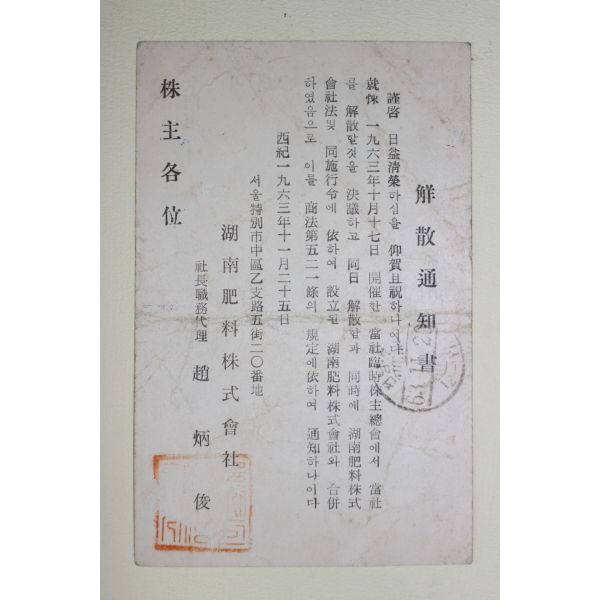 解散通知書
謹啓 日益淸榮하심을 仰賀且祝하나이다
就悚 一九六三年十月十七日 開催한 當社臨時株主總會에서 當社
를 解散할것을 決議하고 同日 解散함과 同時에 湖南肥料株式
會社法및 同施行令에 依하여 設立된 湖南肥料株式會社와 合併
하였음으로 이를 商法第五二一條의 規定에依하여 通知하나이다
西紀一九六三年十一月二十五日
서울特別市中區乙支路五街二〇番地
湖南肥料株式會社
社長職務代理 趙炳俊
株主各位
63.11.2